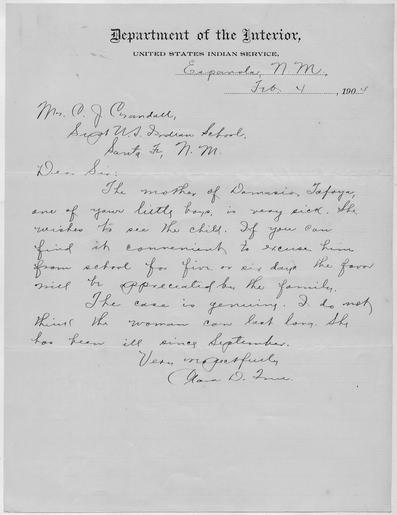 Department of the Interior,
UNITED STATES INDIAN SERVICE,
Espanola, N M,
Feb. 4, 1904
Mr. C. J. Crandall,
Supt U.S. Indian School,
Santa Fe, N. M.
Dear Sir:
The mother of Damasio Tafoya,
one of your little boys, is very sick. She
wishes to see the child. If you can
find it convenient to excuse him
from school for five or six days the favor
will be appreciated by the family.
The case is genuine. I do not
think the woman can last long. She
has been ill since September.
Very respectfully
Clara D. True.